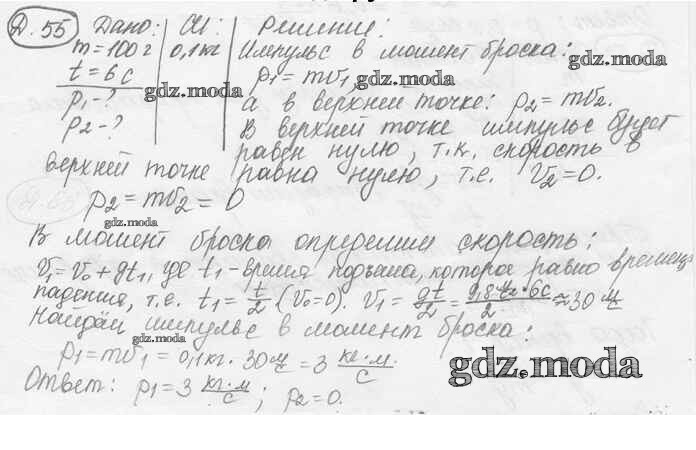 Д. 55 Дано: СИ: Решение:
m=100г 0,1кг Импульс в момент броска:
t=6с p₁=mv₁, gdz.moda
gdz.moda
p₁-? а в верхней точке: p₂=mv₂.
p₂-? В верхней точке импульс будет
равен нулю, т.к. скорость в
верхней точке равна нулю, т.е. v₂=0.
gdz.moda
p₂=mv₂=0
gdz.moda
В момент броска определим скорость:
v₁=v₀+gt₁, где t₁-время подъема, которое равно времени
падения, т.е. t₁=t/2 (v₀=0). v₁=gt/2=9,8 м/с²·6с/2≈30 м/с
Найдём импульс в момент броска:
p₁=mv₁=0,1кг·30 м/с=3 кг·м/с
gdz.moda
Ответ: p₁=3 кг·м/с; p₂=0.